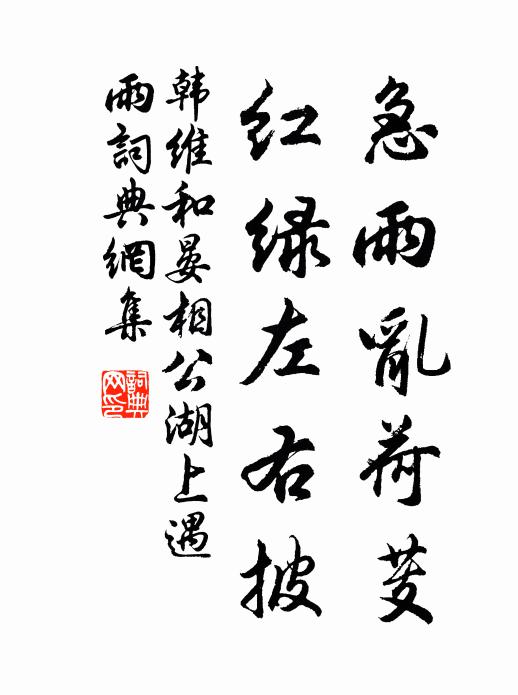 急雨亂荷芰
紅綠左右披
韩維和晏相公湖上遇
雨詞典網集
詞典
网印